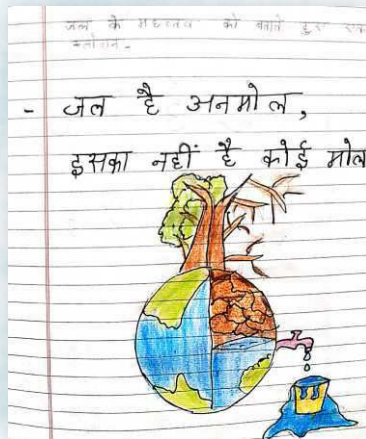 जल के महत्तव को बताते हुए एक
स्लोगन -
- जल है अनमोल,
इसका नहीं है कोई मोल